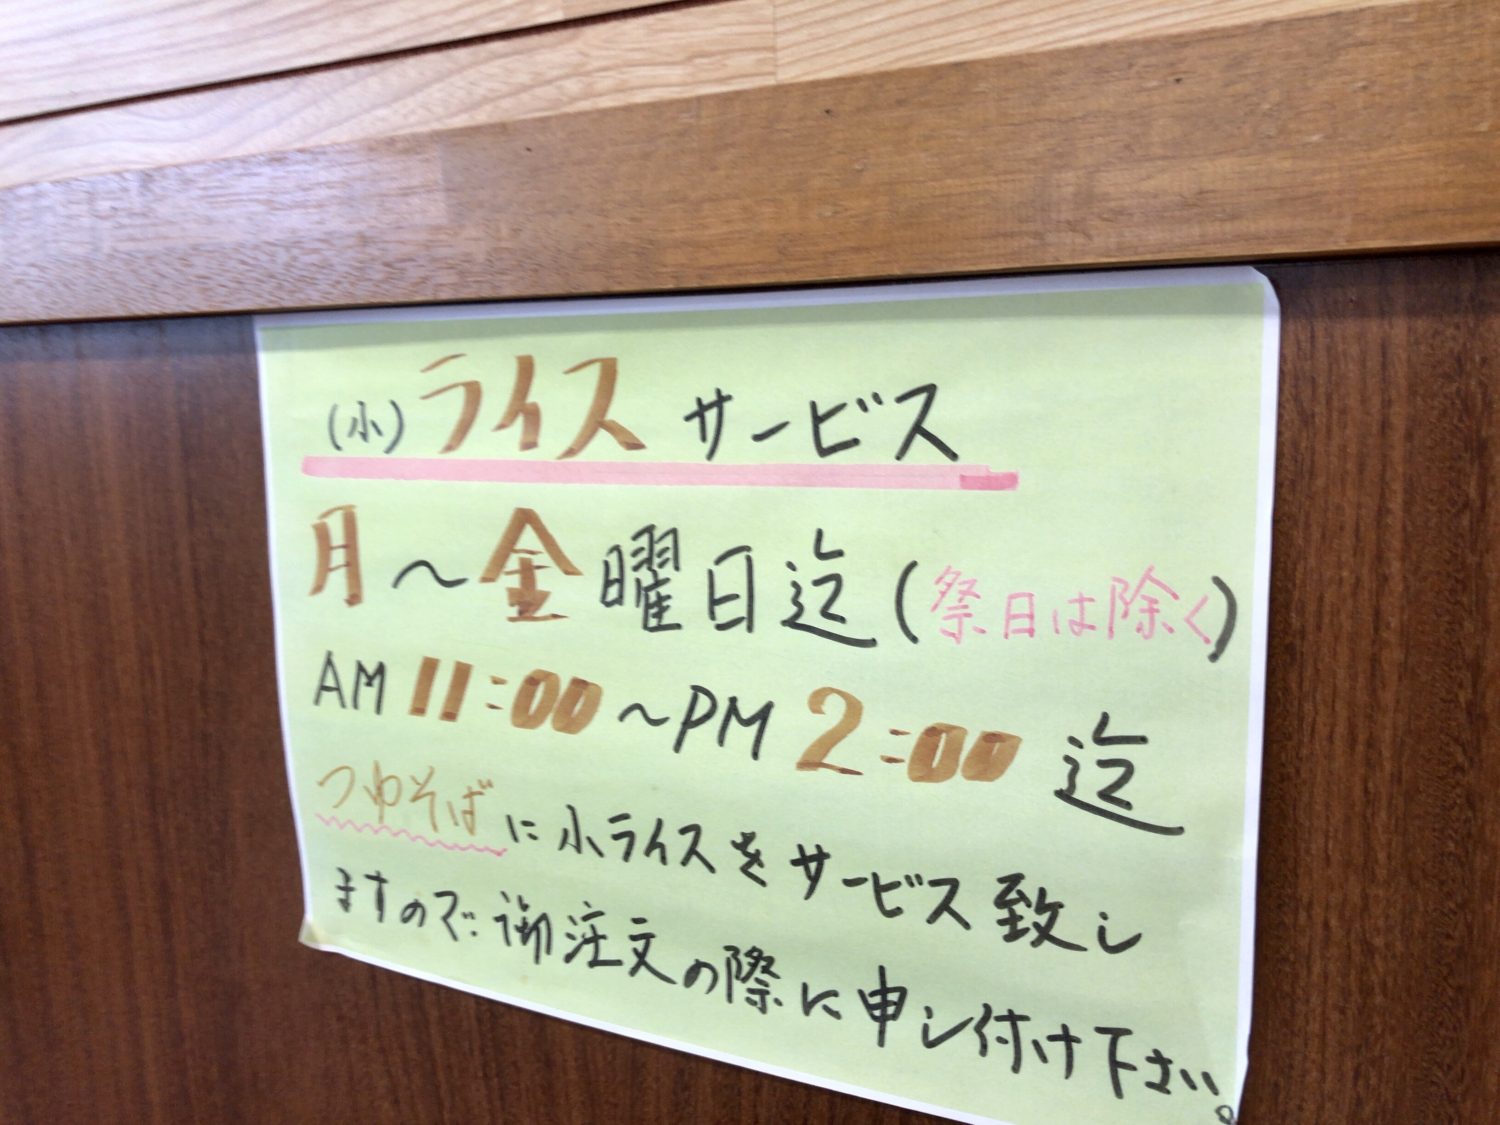 (小)ライスサービス
月〜金曜日迄(祭日は除く)
AM 11:00〜PM 2:00 迄
つゆそばに小ライスをサービス致し
ますので御注文の際に申し付け下さい。